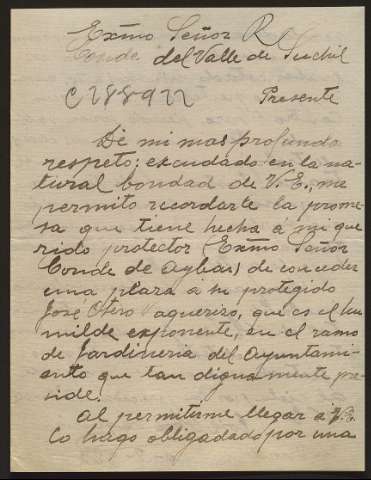 Exmo Señor R
Conde del Valle de Suchil
C 28-8-922 Presente
De mi mas profundo
respeto; escudado en la na-
tural bondad de V.E., me
permito recordarle la prome-
sa que tiene hecha á mi que
rido protector (Exmo Señor
Conde de Aybar) de conceder
una plaza á su protegido
José Otero aquerizo, que es el hu
milde exponente, en el ramo
de Jardineria del Ayuntami-
ento que tan dignamente pre-
side.
Al permitirme llegar á V.E.
lo hago obligadado por una